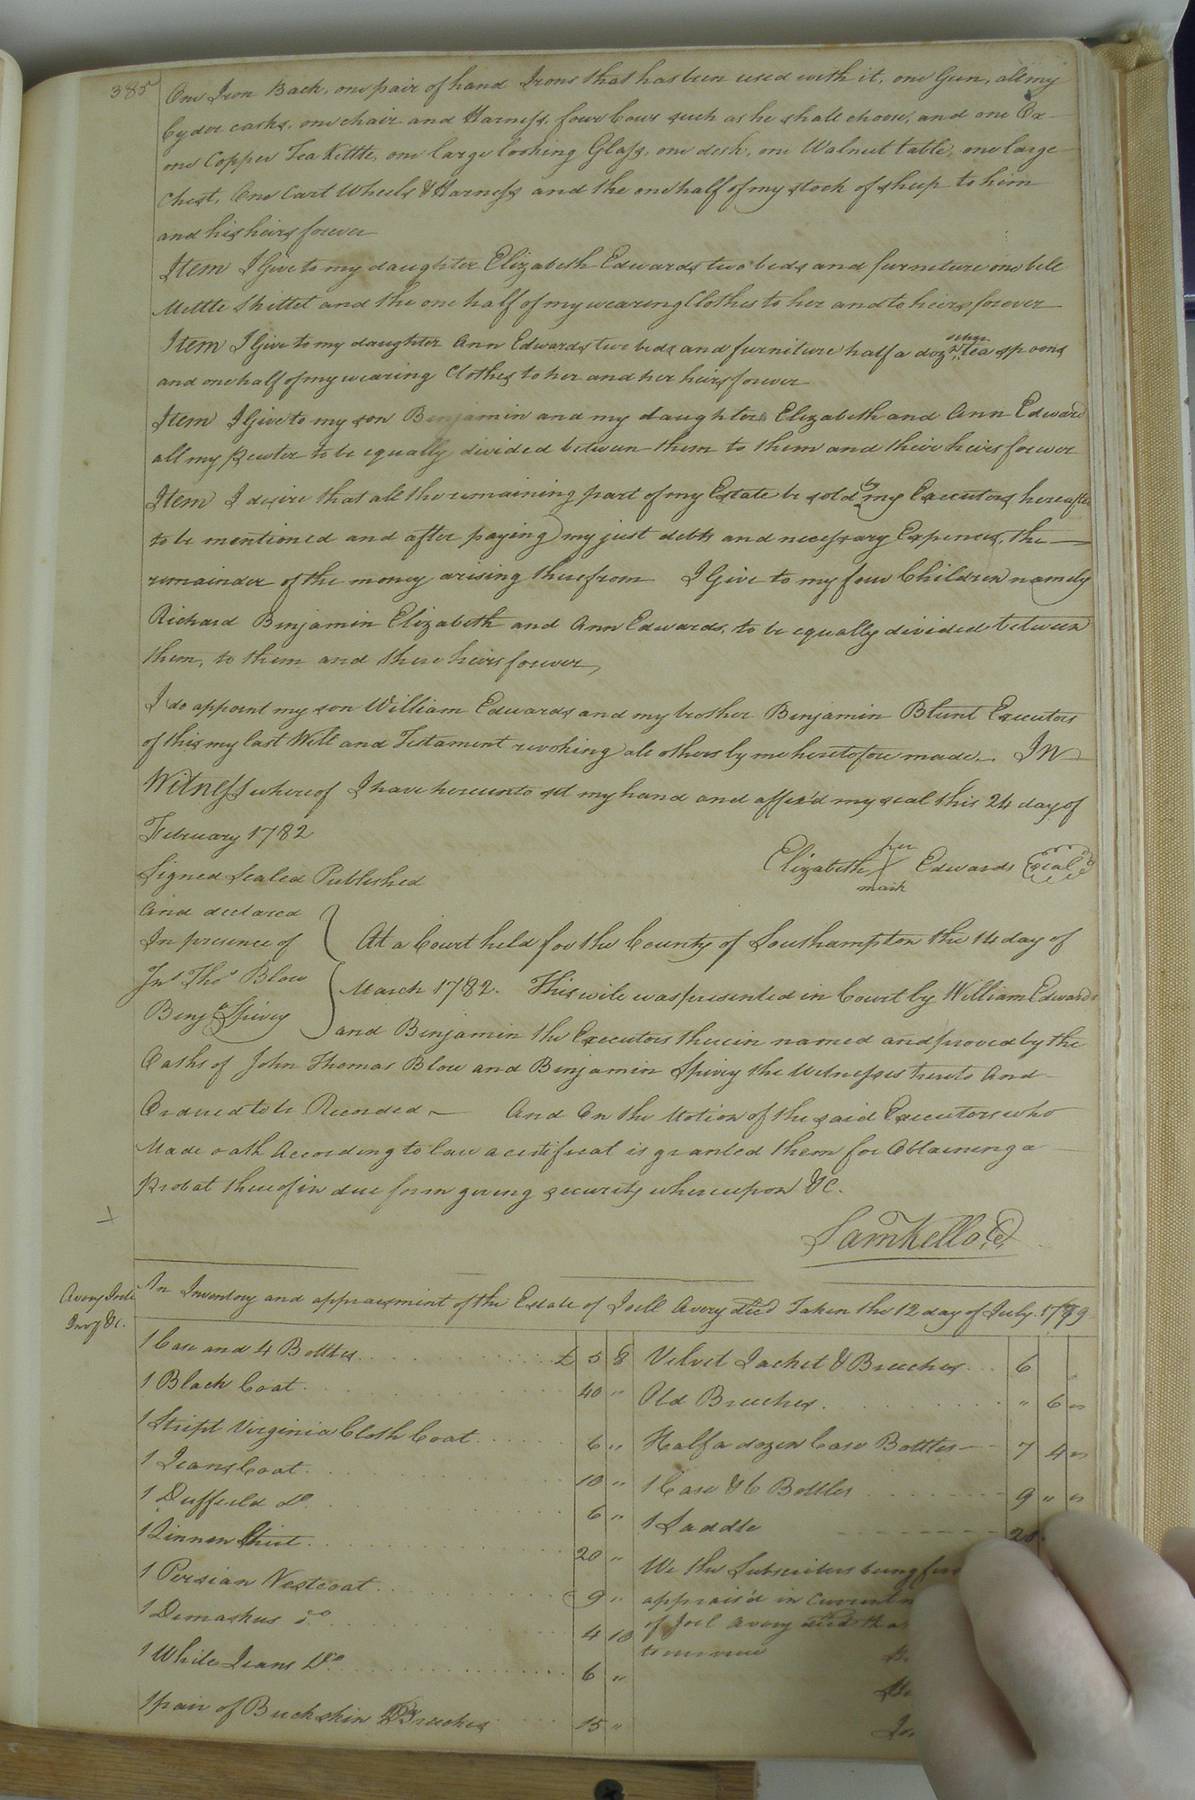 385
One Iron Back, one pair of hand Irons that has been used with it, one Gun, all my
Cyder casks, one chair and Harness, four Cows such as he shall choose, and one Ox
one Copper Tea Kettle, one large looking Glass, one desk, one Walnut table, one large
Chest, One Cart Wheels & Harness and the one half of my stock of sheep to him
and his heirs forever
Item I Give to my daughter Elizabeth Edwards two beds and furniture one bell
Mettle skillet and the one half of my wearing Clothes to her and to heirs forever
Item I Give to my daughter Ann Edwards two beds and furniture half a doz tea spoons
and one half of my wearing Clothes to her and her heirs forever
Item I Give to my son Benjamin and my daughters Elizabeth and Ann Edward
all my pewter to be equally divided between them to them and their heirs forever
Item I desire that all the remaining part of my Estate be sold by my Executors hereafter
to be mentioned and after paying my just debts and necessary Expences, the
remainder of the money arising therefrom I Give to my four Children namely
Richard Benjamin Elizabeth and Ann Edwards, to be equally divided between
them, to them and there heirs forever,
I do appoint my son William Edwards and my brother Benjamin Blunt Executors
of this my last Will and Testament revoking all others by me heretofore made. IN
Witness whereof I have hereunto set my hand and affix'd my seal this 24 day of
February 1782
her
Elizabeth X Edwards (seal)
mark
Signed Sealed Published
And declared
In presence of
Jno Thos Blow
Benj Spivey
At a Court held for the County of Southampton the 14 day of
March 1782. This will was presented in Court by William Edwards
and Benjamin the Executors therein named and proved by the
Oaths of John Thomas Blow and Benjamin Spivey the Witnesses thereto And
Ordered to be Recorded — And On the Motion of the said Executors who
Made oath According to law a certificat is granted them for Obtaining a
Probat thereof in due form giving security whereupon &C.
Sam Kello C
Avery Joel
Invy &c.
An Inventory and appraisment of the Estate of Joell Avery dec'd Taken the 12 day of July 1779
1 Case and 4 Bottles £ 5 8
1 Black Coat 40 "
1 Stript Virginia Cloth Coat 6 "
1 Jeans Coat 10 "
1 Duffield do 6 "
1 Linnen Shirt 20 "
1 Persian Vestcoat 9 "
1 Demaskus do 4 10
1 White Jeans Do 6 "
1 pair of Buckskin Breeches 15 "
Velvet Jacket & Breeches 6
Old Breeches " 6 "
Half a dozen Case Bottles 7 4 "
1 Case & 6 Bottles 9 " "
1 Saddle
We the Subscribers being
apprais'd in Current
of Joel Avery dec'd tha
to our view